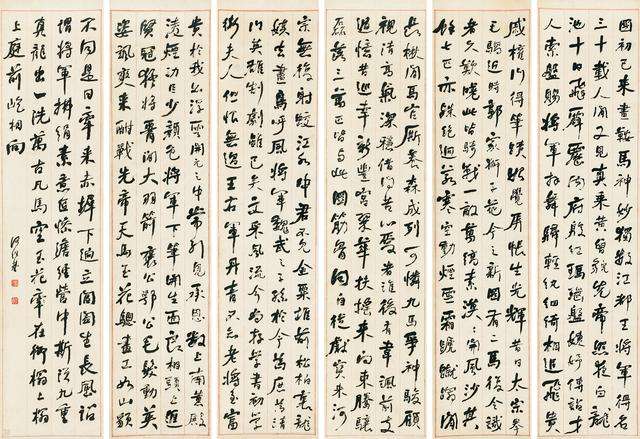 國初已來畫鞍馬神妙獨數江都王將軍得名
三十載人間又見真乘黃曾貌先帝照夜白龍
池十日飛霹靂內府殷紅瑪瑙盤婕妤傳詔才
人索盤賜將軍拜舞歸輕紈細綺相追飛貴
戚權門得筆跡始覺屏障生光輝昔日太宗拳
毛騧近時郭家獅子花今之新圖有二馬復令識
者久歎嗟此皆騎戰一敵萬縞素漠漠開風沙其
餘七匹亦殊絕迥若寒空動煙雪霜蹄蹴踏
長楸間馬官廝養森成列可憐九馬爭神駿顧
視清高氣深穩借問苦心愛者誰後有韋諷前支
遁憶昔巡幸新豐宮翠華來向東騰驤
磊落三萬匹皆與此圖筋骨同自從獻寶河
宗無復射蛟江水中君不見金粟堆前松柏裏龍
媒去盡鳥呼風將軍魏武之子孫於今為庶為清
門英雄割據雖已矣文采風流今尚存學書初學
衛夫人但恨無過王右軍丹青不知老將至富
貴於我如浮雲開元之中常引見承恩數上南薰殿
淩煙功臣少顏色將軍下筆開生面良相頭上進
賢冠猛將腰間大羽箭褒公鄂公毛髮動英
姿颯爽來酣戰先帝天馬玉花驄畫工如山貌
不同是日牽來赤墀下迥立閶闔生長風詔
謂將軍拂絹素意匠慘澹經營中斯須九重
真龍出一洗萬古凡馬空玉花在御榻上榻
上庭前屹相向
何紹基